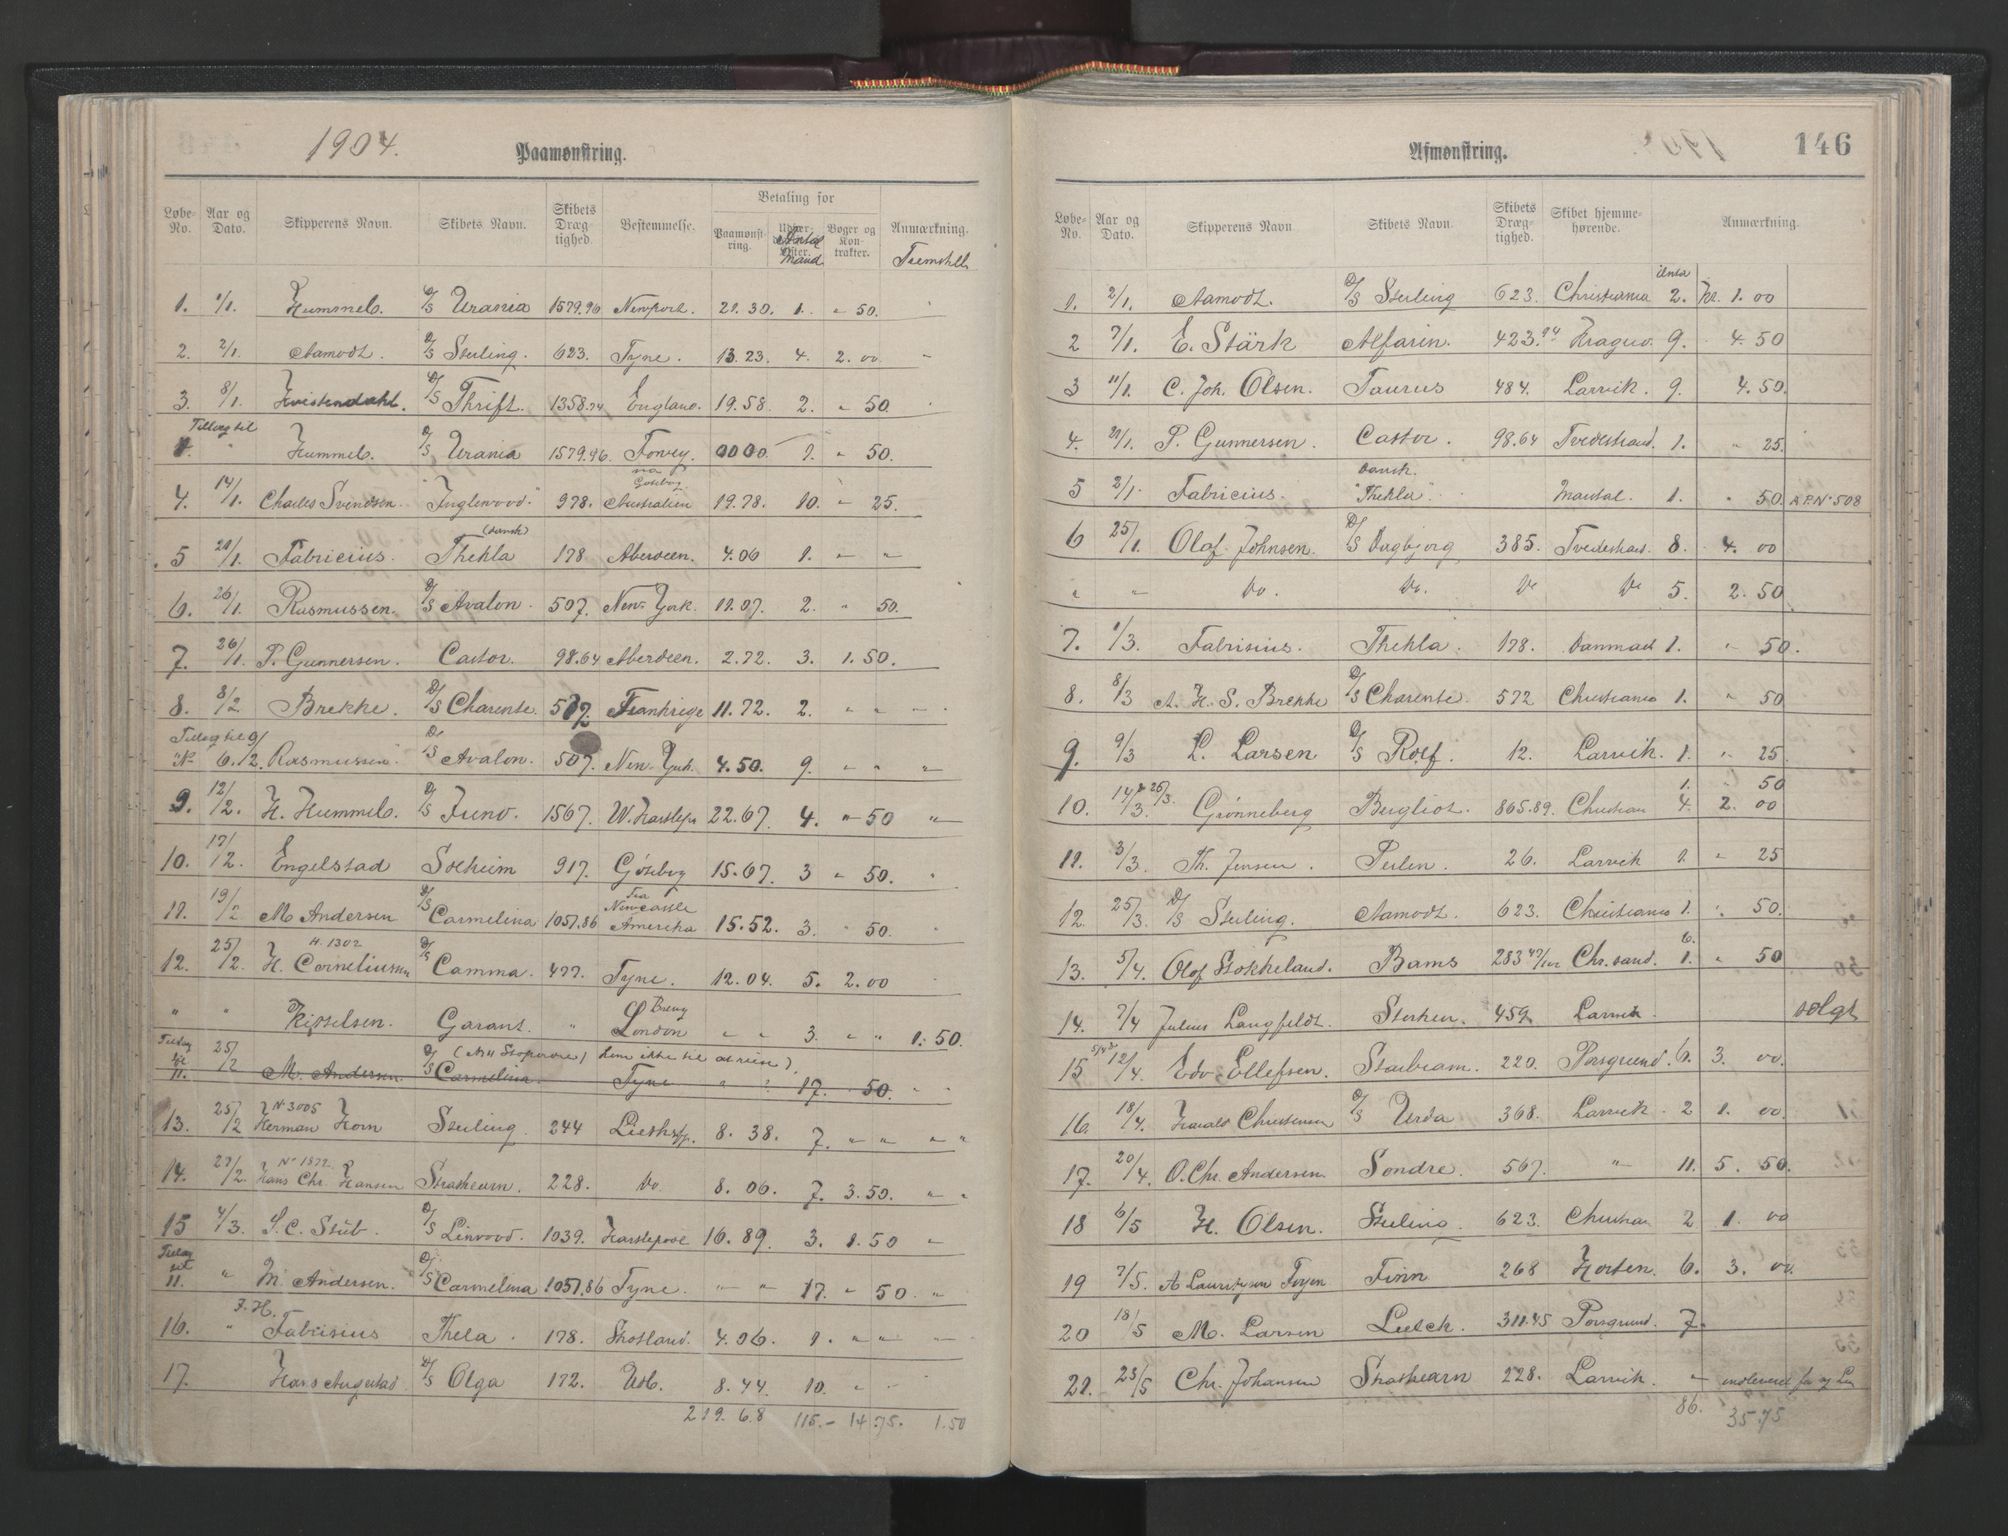 1904.
Paamønstring.
Løbe-No. Aar og Dato. Skipperens Navn. Skibets Navn. Skibets Dræg-tighed. Bestemmelse. Betaling for Paamønst-ring. Antal Mand Bøger og Kon-trakter. Anmærkning.
1. 1/1. Hummel. D/S Urania 1579.96 Newport. 21.30. 1. " 50. "
2. 2/1. Aamodt. D/S Sterling. 623. Tyne. 13.23. 4. 2.00. "
3. 8/1. Hvistendahl. D/S Thrift. 1358.74 England. 19.58. 2. " 50.
Tillæg til
1. " Hummel. D/S Urania 1579.96. Fowey. 0000. 1. " 50.
4. 14/1. Charles Svendsen. "Inglewood" 978. Australien 19.78. 10. " 25.
5 21/1. Fabricius. Thekla (dansk) 178 Aberdeen. 4.06 1. " "
6. 26/1. Rasmussen. D/S Avalon. 507. New-York. 11.07. 2. " 50.
7. 26/1. P. Gunnersen. Castor. 98.64 Aberdeen. 2.72. 3. 1.50.
8. 8/2 Brekke. D/S Charente. 572. Frankrige 11.72. 2. " "
Tillæg til 9/
No 6. 12. Rasmussen D/S Avalon. 507. New-York. 4.50. 9. " " "
9. 12/2. H. Hummel. D/S Juno. 1567. W. Hartlep. 22.67. 4. " 50 "
10. 17/2. Engelstad Solheim 917. Göteborg 15.67. 3 " 50. "
11. 19/2 M Andersen D/S Carmelina 1057.86 Fra Newcastle Amerika 15.52. 3. " 50.
12. 25/2. H. Corneliussen N. 1302 D/S Camma. 477. Tyne. 12.04. 5. 2.00
" " Kittelsen. Garant. " London " " 3. " " 1.50.
Tillæg til 11. 25/2 M. Andersen. D/S Carmelina. Tyne " " 17. 50. "
13. 25/2 No 3005 Herman Horn Sterling. 244 Liethsp. 8.38. 7. " " " "
14. 27/2. No 1872 Hans Chr. Hansen Strathearn. 228. Do. 8.06. 7. 3.50. " "
15 4/3. S. C. Stüb. D/S Linwood. 1039. Hartlepool 16.89. 3. 1.50 "
Tillæg til 11. " M. Andersen. D/S Carmelina 1057.86 Tyne. " " 17. " 50. "
16. " J. H. Fabrisius Thela. 178. Skotland. 4.06. 1. " " "
17. Hans Augestad D/S Olga 172. 8.44. 10. "
219.68 115.- 14.75. 1.50
Afmønstring.
146
Løbe-No. Aar og Dato. Skipperens Navn Skibets Navn. Skibets Dræg-tighed. Skibet hjemme-hørende. Anmærkning.
1. 2/1. Aamodt. D/S Sterling 623. Christiania 2. Kr. 1.00
2 7/1. E. Stärk Alfarin. 423.94 Kragerø. 9. 4.50
3 11/1. C. Joh. Olsen. Taurus 484. Larvik. 9. 4.50.
4. 21/1. P. Gunnersen. Castor. 98.64 Tvedestrand. 1. " 25.
5 2/1. Fabricius. Dansk. "Thekla". Marstal. 1. " 50. No 508
6 25/1. Olof Johnsen. D/S Dagbjørg 385. Tvedestrand. 8. 4.00
" " Do. Do. Do Do 5. 2.50
7. 1/3. Fabrisius. Thekla. 178. Danmark 1. " 50.
8. 8/3 A. H. S. Brekke D/S Charente. 572 Christiania 1. " 50
9. 9/3 L. Larsen D/S Rolf. 12. Larvik. 1. " 25
10. 14/3. & 26/3. Grønneberg Bergliot. 865.89. Christian 1. " 50 4. 2.00
11. 3/3. Th. Jensen. Perlen. 26. Larvik 1. " 25
12. 25/3. D/S Sterling. Aamodt. 623. Christiania 1. " 50.
13. 5/4. Olof Stokkeland. Bams 283 47/100 Chr.sand. 1. " 50
14. 7/4 Julius Langfeldt. Sterken. 459 Larvik solgt
15 12/4. Edv. Ellefsen. Starbeam. 220. Porsgrund. 6. 3.00.
16. 18/4. Harald Christensen D/S Urda 368. Larvik. 2 1.00.
17. 20/4. O. Chr. Andersen. Sondre. 567. " 11. 5.50.
18 6/5 H. Olsen. Sterling. 623. Christian 2 1.00
19 7/5. A Lauritzen Finn 268 Horten. 6. 3.00.
20 18/5 M. Larsen Leetch. 311.45 Porsgrund. 7.
21. 23/5 Chr. Johansen Strathearn 228. Larvik. "
86. 35.75